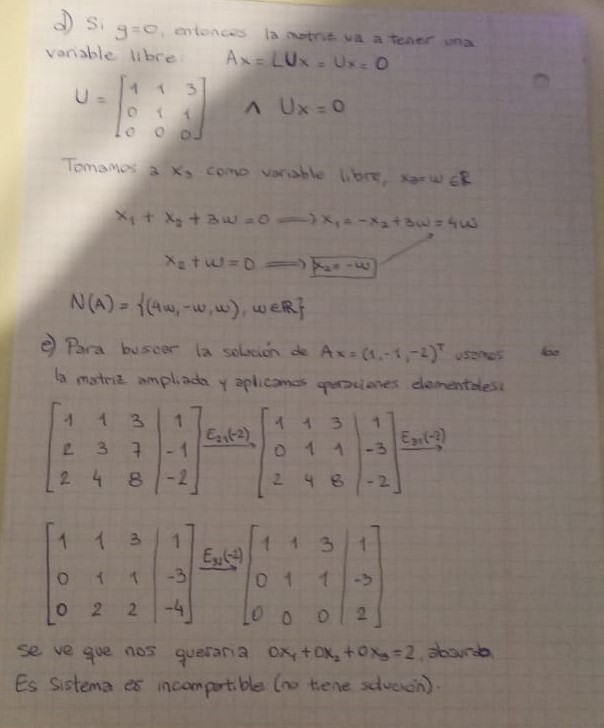 d) Si y=0, entonces la matriz va a tener una
variable libre: Ax = LUx = Ux = 0
U = [1 1 3; 0 1 1; 0 0 0] ∧ Ux = 0
Tomamos a x₃ como variable libre, x₃=w ∈ℝ
x₁ + x₂ + 3w = 0 ⟹ x₁ = -x₂+3w = 4w
x₂ + w = 0 ⟹ x₂ = -w
N(A) = {(4w, -w, w), w∈ℝ}
e) Para buscar la solución de Ax = (1, -1, -2)ᵀ usamos
la matriz ampliada y aplicamos operaciones elementales:
[1 1 3 | 1; 2 3 7 | -1; 2 4 8 | -2] E₂₁(-2) → [1 1 3 | 1; 0 1 1 | -3; 2 4 8 | -2] E₃₁(-2) →
[1 1 3 | 1; 0 1 1 | -3; 0 2 2 | -4] E₃₂(-2) → [1 1 3 | 1; 0 1 1 | -3; 0 0 0 | 2]
se ve que nos quedaria 0x₁+0x₂+0x₃=2, absurdo.
Es sistema es incompatible (no tiene solución).